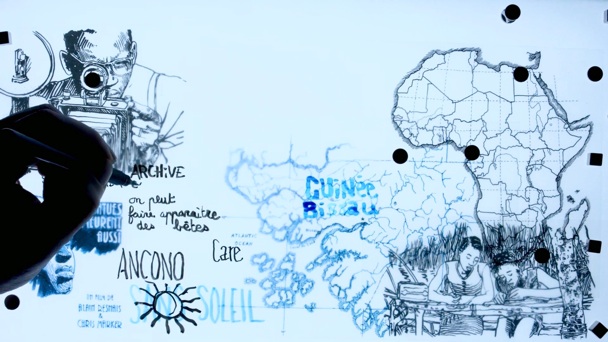 ARCHIVE
on peut
faire apparaître
des bêtes
GUINée
BISSAU
ATLANTIC
OCEAN
TUES
EURENT
AUSSI
ANCONO
Care
UN FILM DE
ALAIN RESNAIS
& CHRIS MARKER
SOLEIL